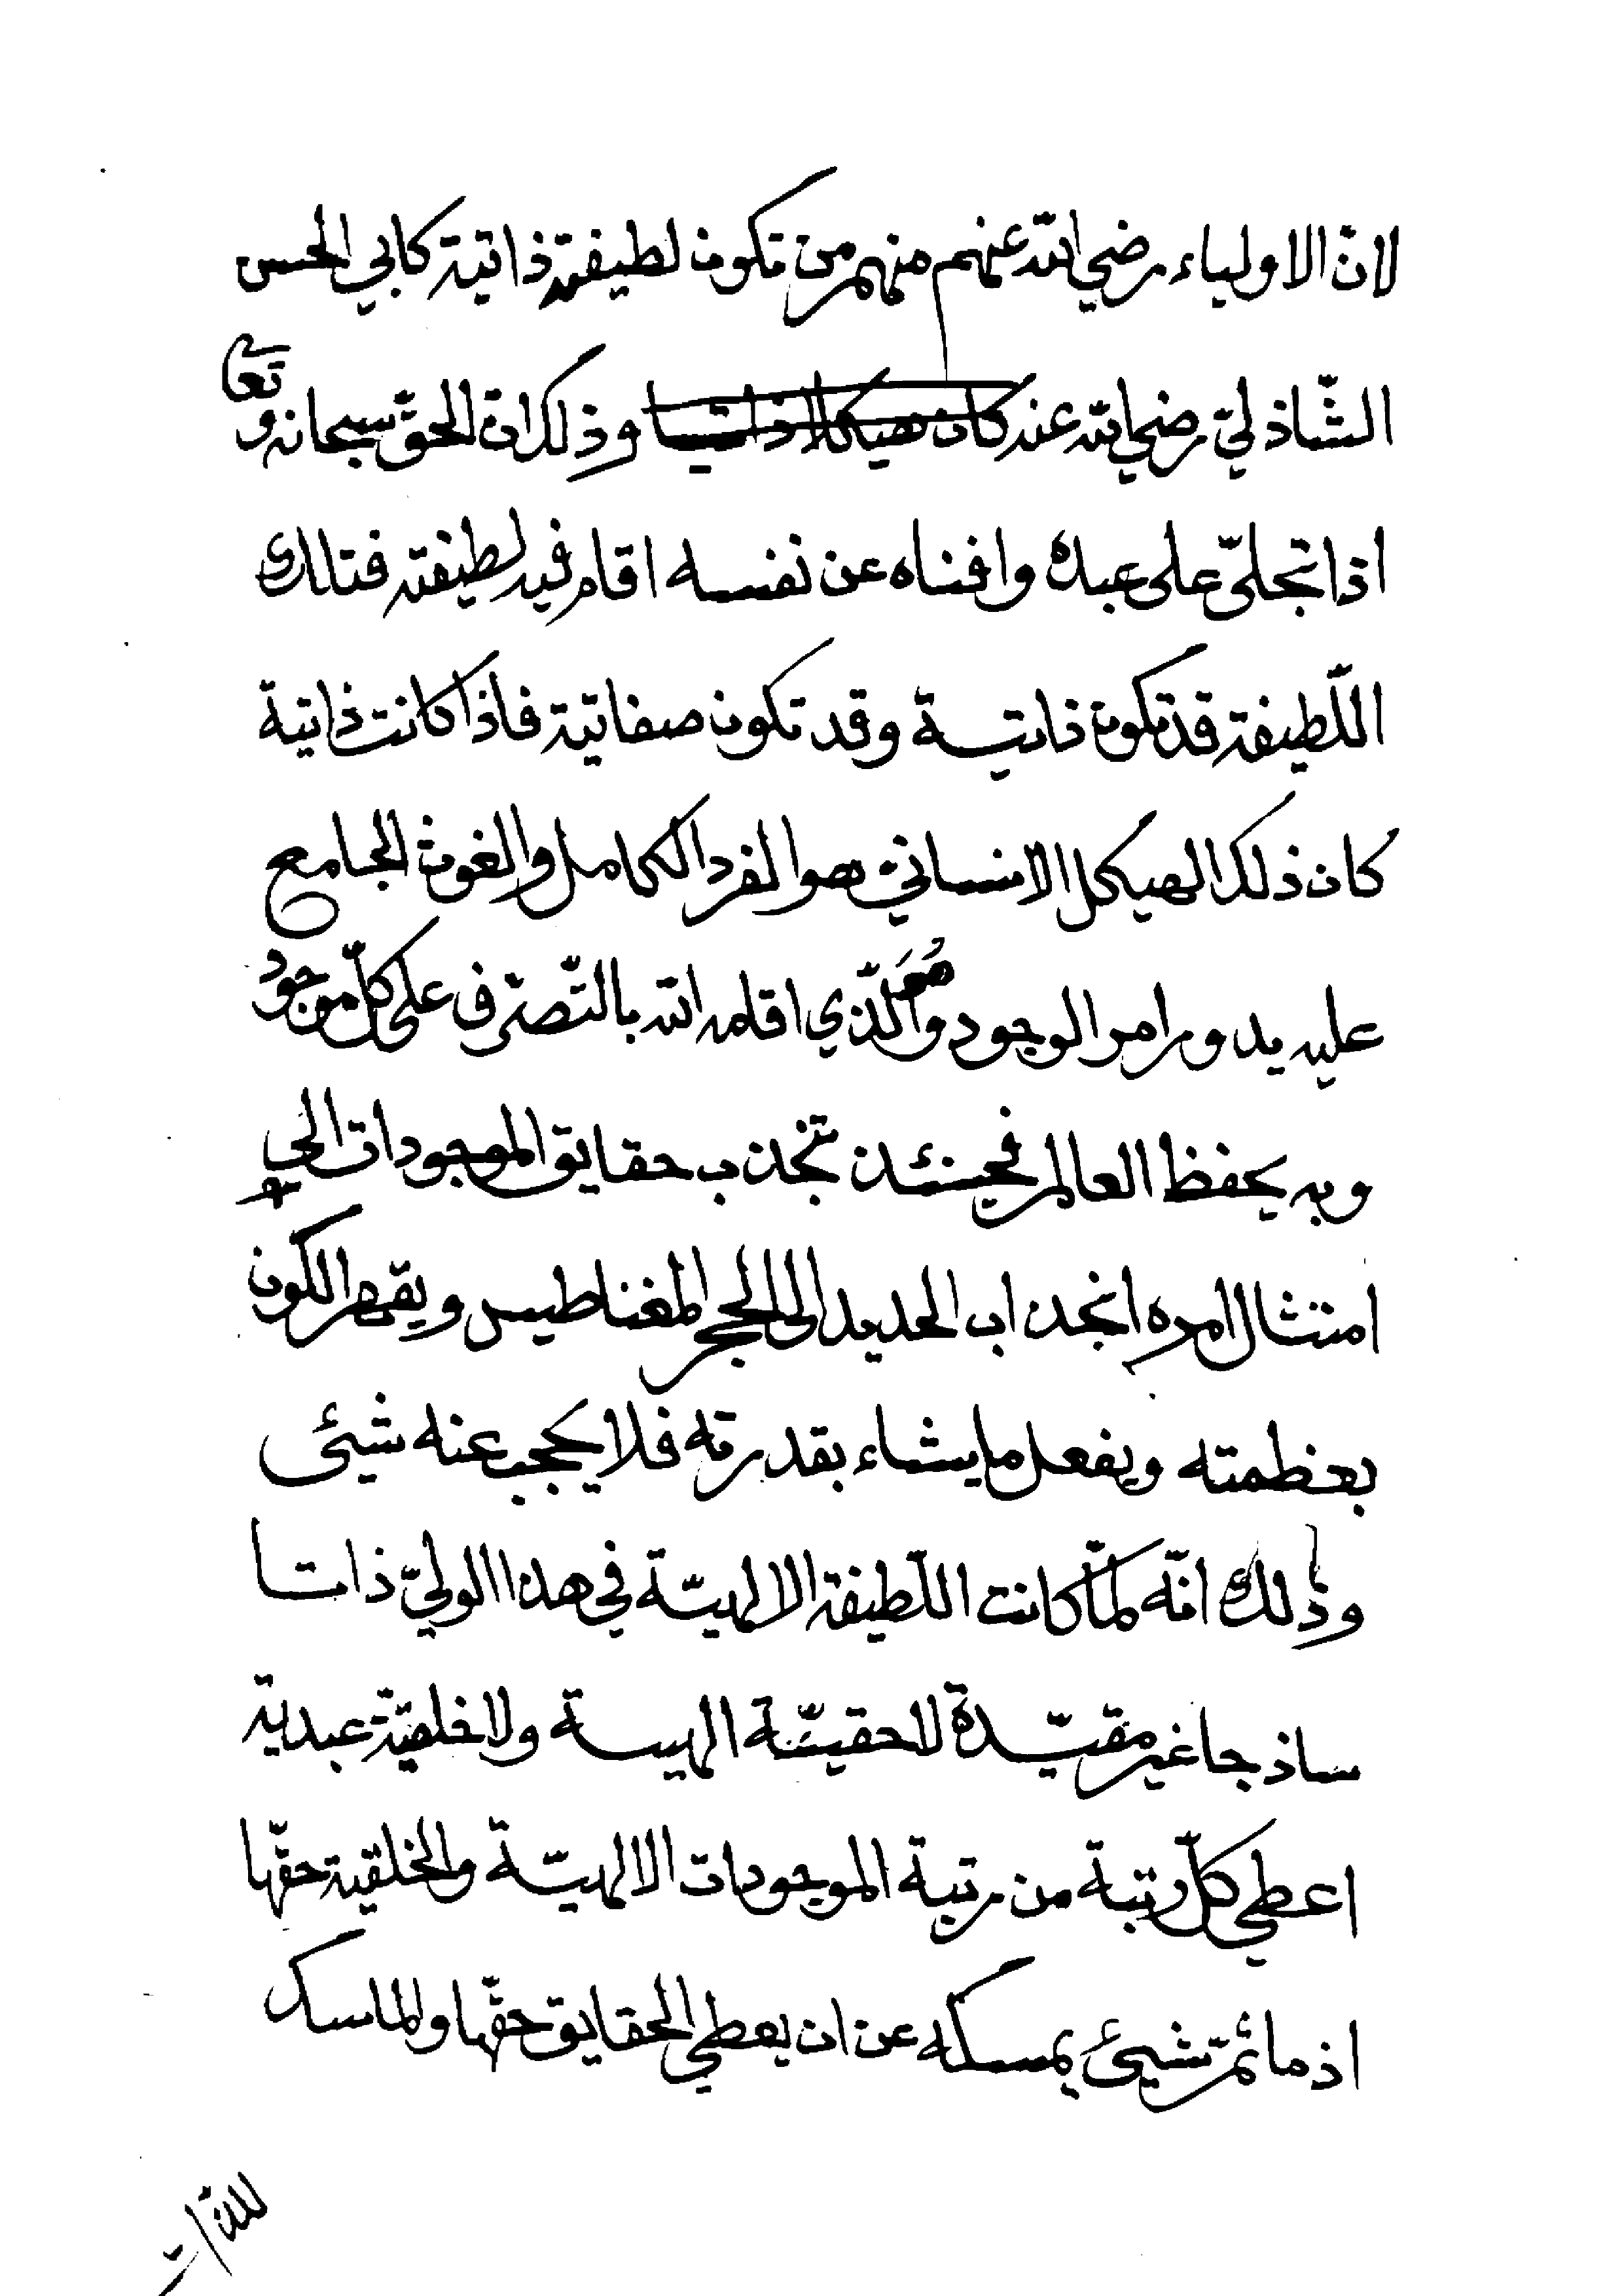 لانّ الاولياء رضي الله عنهم منهم من تكون لطيفته ذاتية كابي الحسن
الشّاذليّ رضي الله عنه كان هيكلا ذاتيا وذلك ان الحقّ سبحانه وتعا
اذا تجلّى على عبده وافناه عن نفسه اقام فيه لطيفته فتلك
اللّطيفة قد تكون ذاتية وقد تكون صفاتية فاذا كانت ذاتية
كان ذلك الهيكل الانسانيّ هو الفرد الكامل والغوث الجامع
عليه يدور امر الوجود وهُوَ الّذي اقامه الله بالتّصرّف على كلّ موجود
وبه يحفظ العالم فحينئذ تنجذب حقايق الموجودات الي
امتثال امره انجذاب الحديد الى الحجر المغناطيس ويقهر الكون
بعظمته ويفعل ما يشاء بقدرته فلا يحجب عنه شيئ
وذلك انّه لمّا كانت اللّطيفة الالهيّة في هذا الوليّ ذاتا
ساذجا غير مقيّدة لا حقيّة الهية ولا خلقيّة عبدية
اعطي كلّ رتبة من رتبة الموجودات الالهيّة والخلقية حقّها
اذ ما ثمّ شيئ يمسكه عن ان يعطي الحقايق حقّها والماسك
للذات